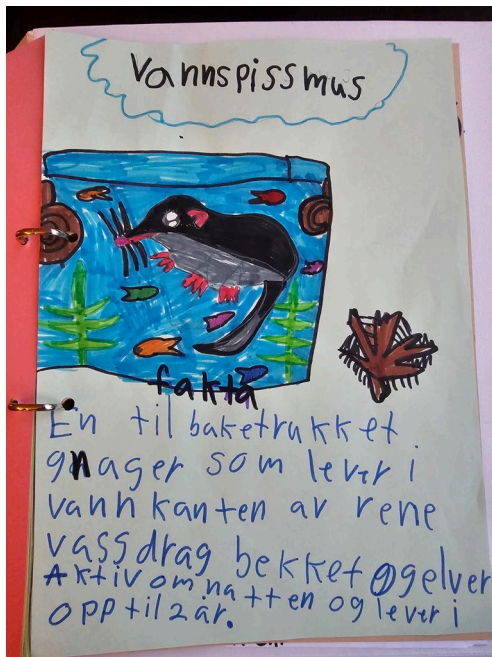 Vannspissmus
fakta
En tilbaketrukket
gnager som lever i
vannkanten av rene
vassdrag bekket og elver
Aktiv om natten og lever i
opp til 2 år.